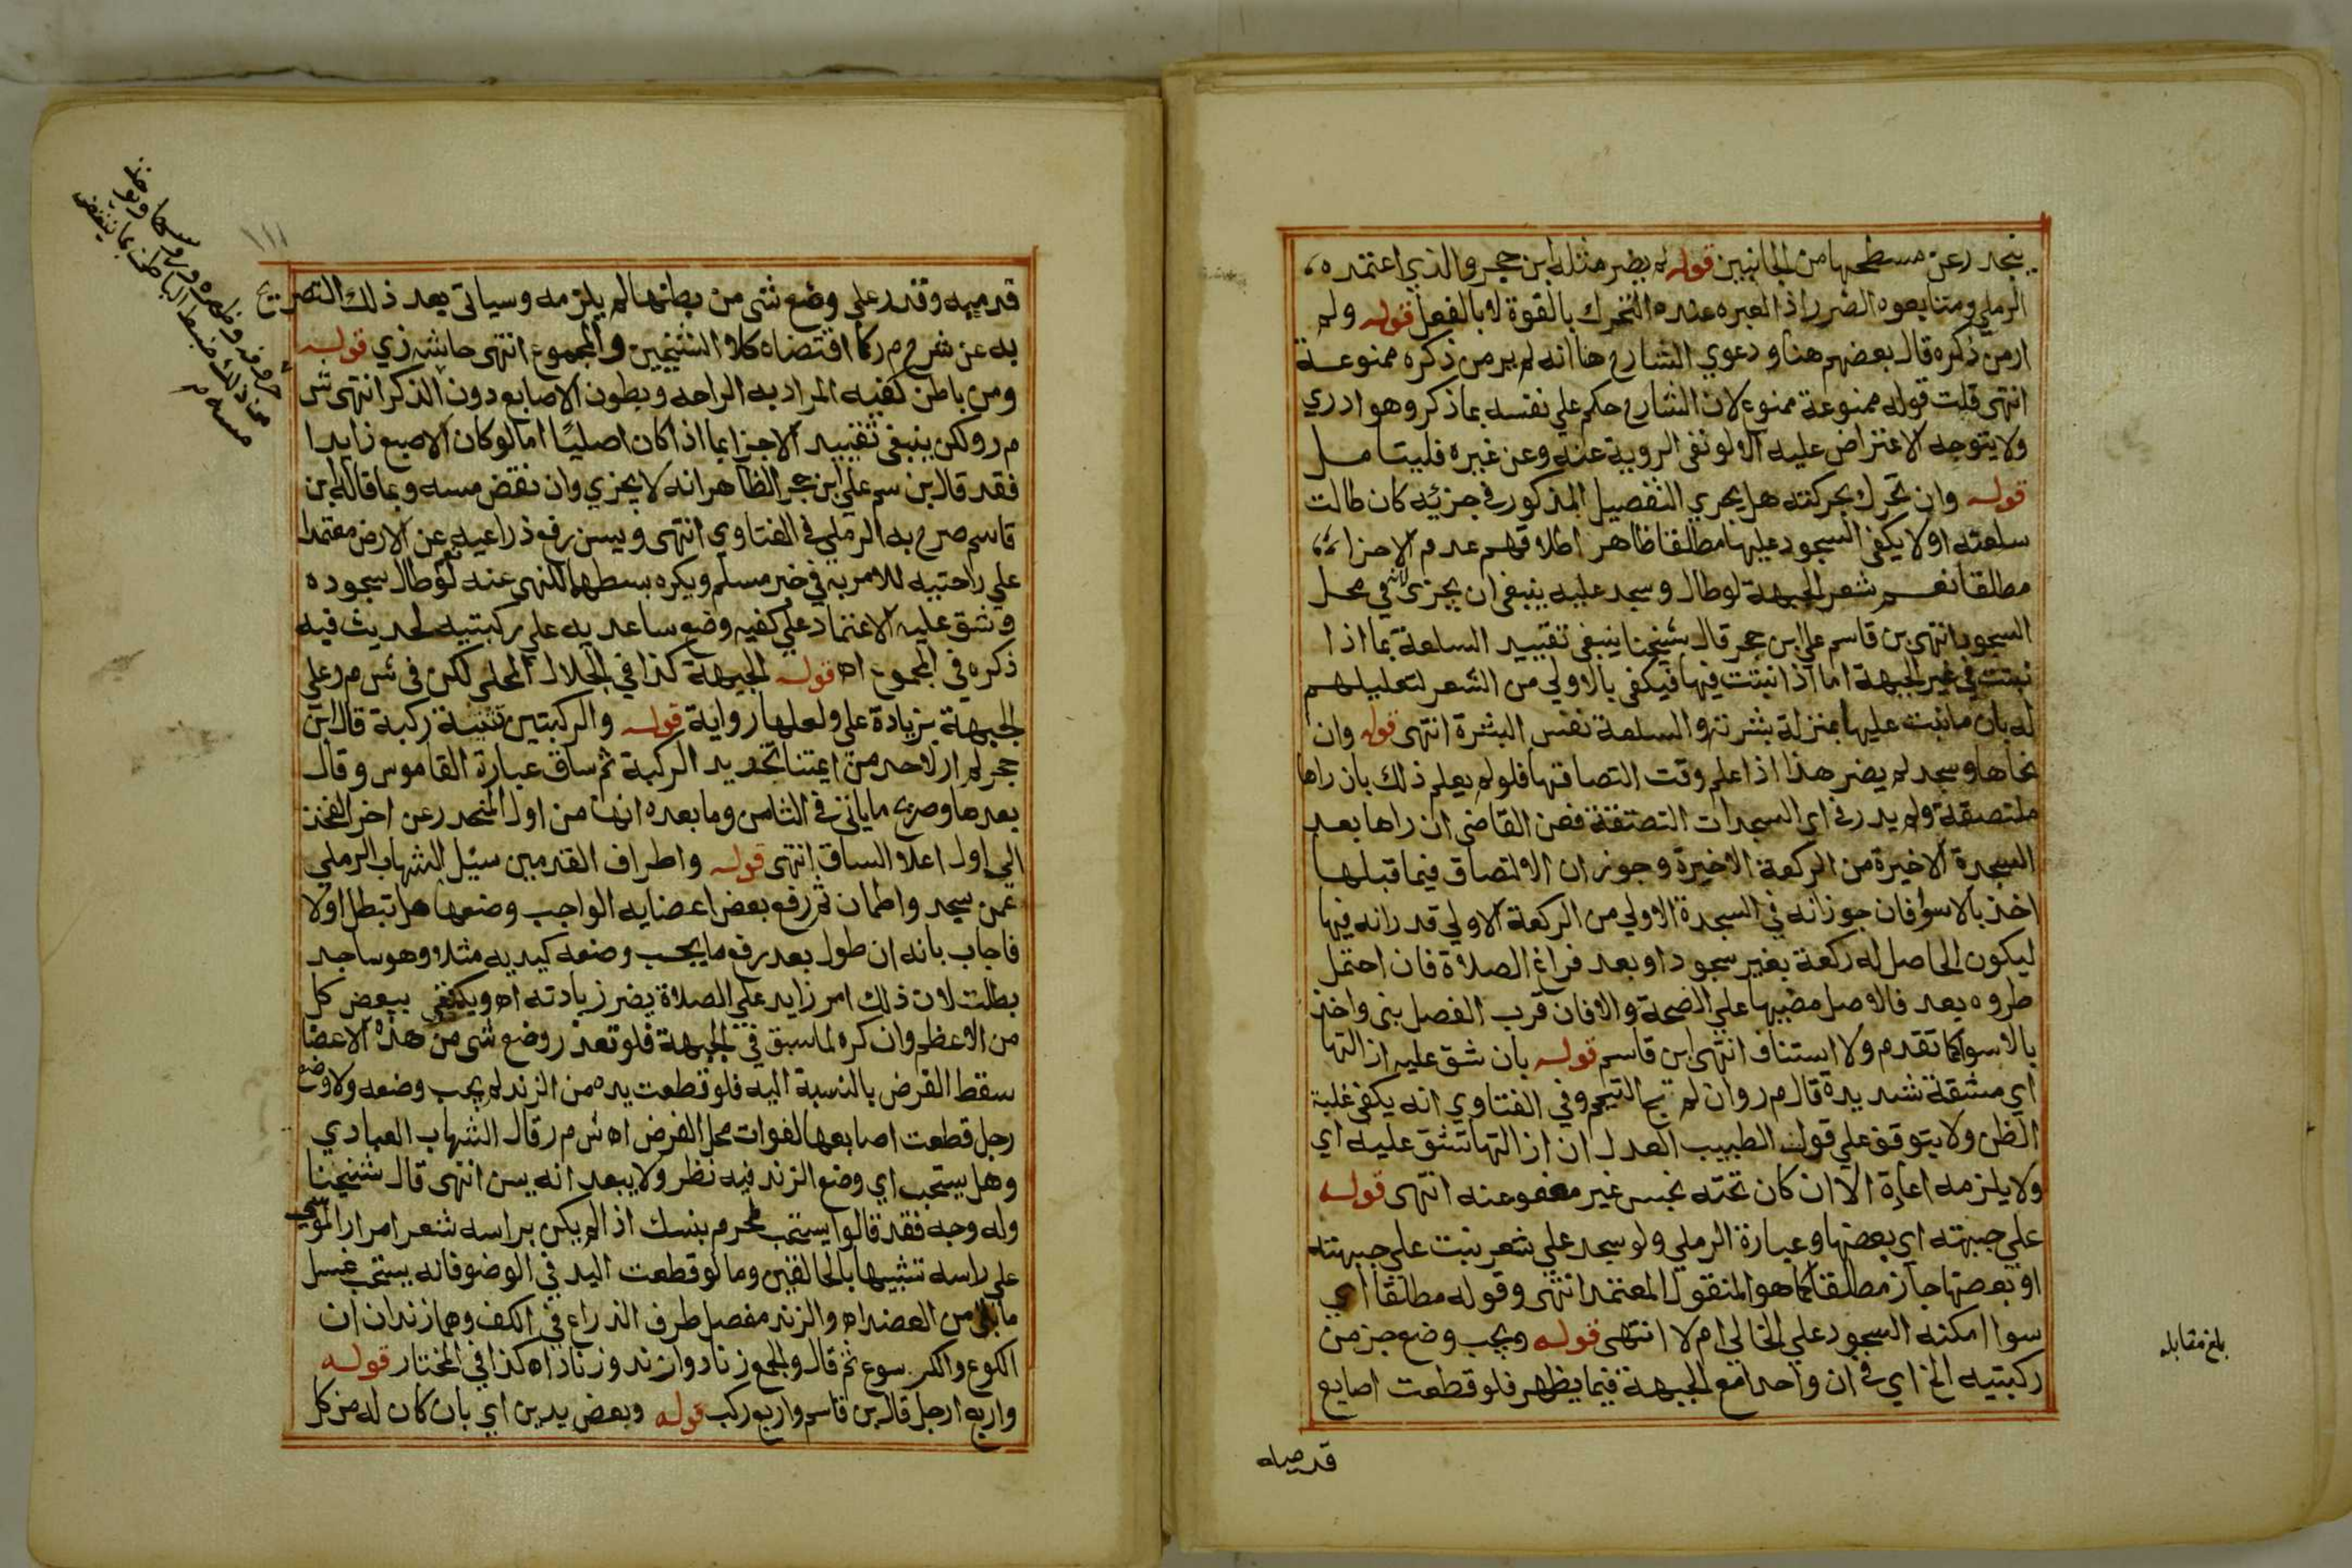 ينحدر عن مسطحها من الجانبين قوله لم يضر مثله ابن حجر والذي اعتمده
الرملي ومتابعوه الضرر اذ العبره عنده التحرك بالقوة لا بالفعل قوله ولم
ار من ذكره قال بعضهم هنا ودعوي الشارح هنا انه لم ير من ذكره ممنوعة
انتهى قلت قوله ممنوعة ممنوع لان الشارح حكم علي نفسه بما ذكر وهو ادري
ولا يتوجه الاعتراض عليه الا لو نفى الروية عنه وعن غيره فليتامل
قوله وان تحرك بحركته هل يجري التفصيل المذكور في جزئه كان طالت
سلعته او لا يكفى السجود عليها مطلقا ظاهر اطلاقهم عدم الاجزاء
مطلقا نعم شعر الجبهة لو طال وسجد عليه ينبغى ان يجزى لانه في محل
السجود انتهى بن قاسم علي ابن حجر قال شيخنا ينبغى تقييد السلعة بما اذا
نبتت في غير الجبهة اما اذا نبتت فيها فيكفى بالاولي من الشعر لتعليلهم
له بان ما نبت عليها بمنزلة بشرته والسلعة نفس البشرة انتهى قوله وان
نحاها وسجد لم يضر هذا اذا علم وقت التصاقها فلو لم يعلم ذلك بان راها
ملتصقة ولم يدر في اي السجدات التصقت فعن القاضى ان راها بعد
السجدة الاخيرة من الركعة الاخيرة وجوز ان الالتصاق فيما قبلها
اخذ بالاسوا فان جوز انه في السجدة الاولي من الركعة الاولي قدر انه فيها
ليكون الحاصل له ركعة بغير سجود او بعد فراغ الصلاة فان احتمل
طروه بعد فالاصل مضيها علي الصحة والا فان قرب الفصل بنى واخذ
بالاسوا كما تقدم ولا استناف انتهى ابن قاسم قوله بان شق عليه ازالتها
اي مشقة شديدة قال م ر وان لم تبح التيمم وفي الفتاوي انه يكفى غلبة
الظن ولا يتوقف علي قول الطبيب العدل ان ازالتها تشق عليه اي
ولا يلزمه اعادة الا ان كان تحته نجس غير معفو عنه انتهى قوله
علي جبهته اي بعضها وعبارة الرملي ولو سجد علي شعر نبت علي جبهته
او بعضها جاز مطلقا كما هو المنقول المعتمد انتهى وقوله مطلقا اي
سوا امكنه السجود علي الخالي ام لا انتهى قوله ويجب وضع جز من
ركبتيه الخ اي في ان واحد مع الجبهة فيما يظهر فلو قطعت اصابع
قدميه
بلغ مقابله
١١١
قدميه وقدر علي وضع شى من بطنها لم يلزمه وسياتى بعد ذلك التصريح
به عن شرح م ر كما اقتضاه كلام الشيخين والمجموع انتهى حاشية زي قوله
ومن باطن كفيه المراد به الراحه وبطون الاصابع دون الذكر انتهى ش
م ر ولكن ينبغى تقييد الاجزا بما اذا كان اصليًا اما لو كان الاصبع زايدا
فقد قال بن سم علي ابن حجر الظاهر انه لا يجزي وان نقض مسه وبما قاله ابن
قاسم صرح به الرملي في الفتاوي انتهى ويسن رفع ذراعيه عن الارض معتمدا
علي راحتيه للامر به في خبر مسلم ويكره بسطهما للنهى عنه نعم لو طال سجوده
وشق عليه الاعتماد علي كفيه وضع ساعديه علي ركبتيه لحديث فيه
ذكره في المجموع اه قوله الجبهة كذا في الجلال المحلي لكن في ش م ر وعلي
الجبهة بزيادة على ولعلها رواية قوله والركبتين تثنية ركبة قال ابن
حجر لم ار لاحد من ايمتنا تحديد الركبة ثم ساق عبارة القاموس وقال
بعدها وصريح ما ياتى في الثامن وما بعده انها من اول المنحدر عن اخر الفخذ
الي اول اعلا الساق انتهى قوله واطراف القدمين سئل الشهاب الرملي
عمن سجد واطمان ثم رفع بعض اعضايه الواجب وضعها هل تبطل اولا
فاجاب بانه ان طول بعد رفع ما يجب وضعه كيديه مثلا وهو ساجد
بطلت لان ذلك امر زايد علي الصلاة يضر زيادته اه ويكتفى ببعض كل
من الاعظم وان كره لما سبق في الجبهة فلو تعذر وضع شى من هذه الاعضا
سقط الفرض بالنسبة اليه فلو قطعت يده من الزند لم يجب وضعه ولا وضع
رجل قطعت اصابعها لفوات محل الفرض اه ش م ر قال الشهاب العبادي
وهل يستحب اي وضع الزند فيه نظر ولا يبعد انه يسن انتهى قال شيخنا
وله وجه فقد قالوا يستحب لمحرم بنسك اذا لم يكن براسه شعر امرار الموسى
علي راسه تشبيها بالحالقين وما لو قطعت اليد في الوضو فانه يستحب غسل
ما بقى من العضد اه والزند مفصل طرف الذراع في الكف وهما زندان ان
الكوع والكرسوع ثم قال والجمع زناد وازند وزناد اه كذا في المختار قوله
واربع ارجل قال بن قاسم واربع ركب قوله وبعض يدين اي بان كان له من كل